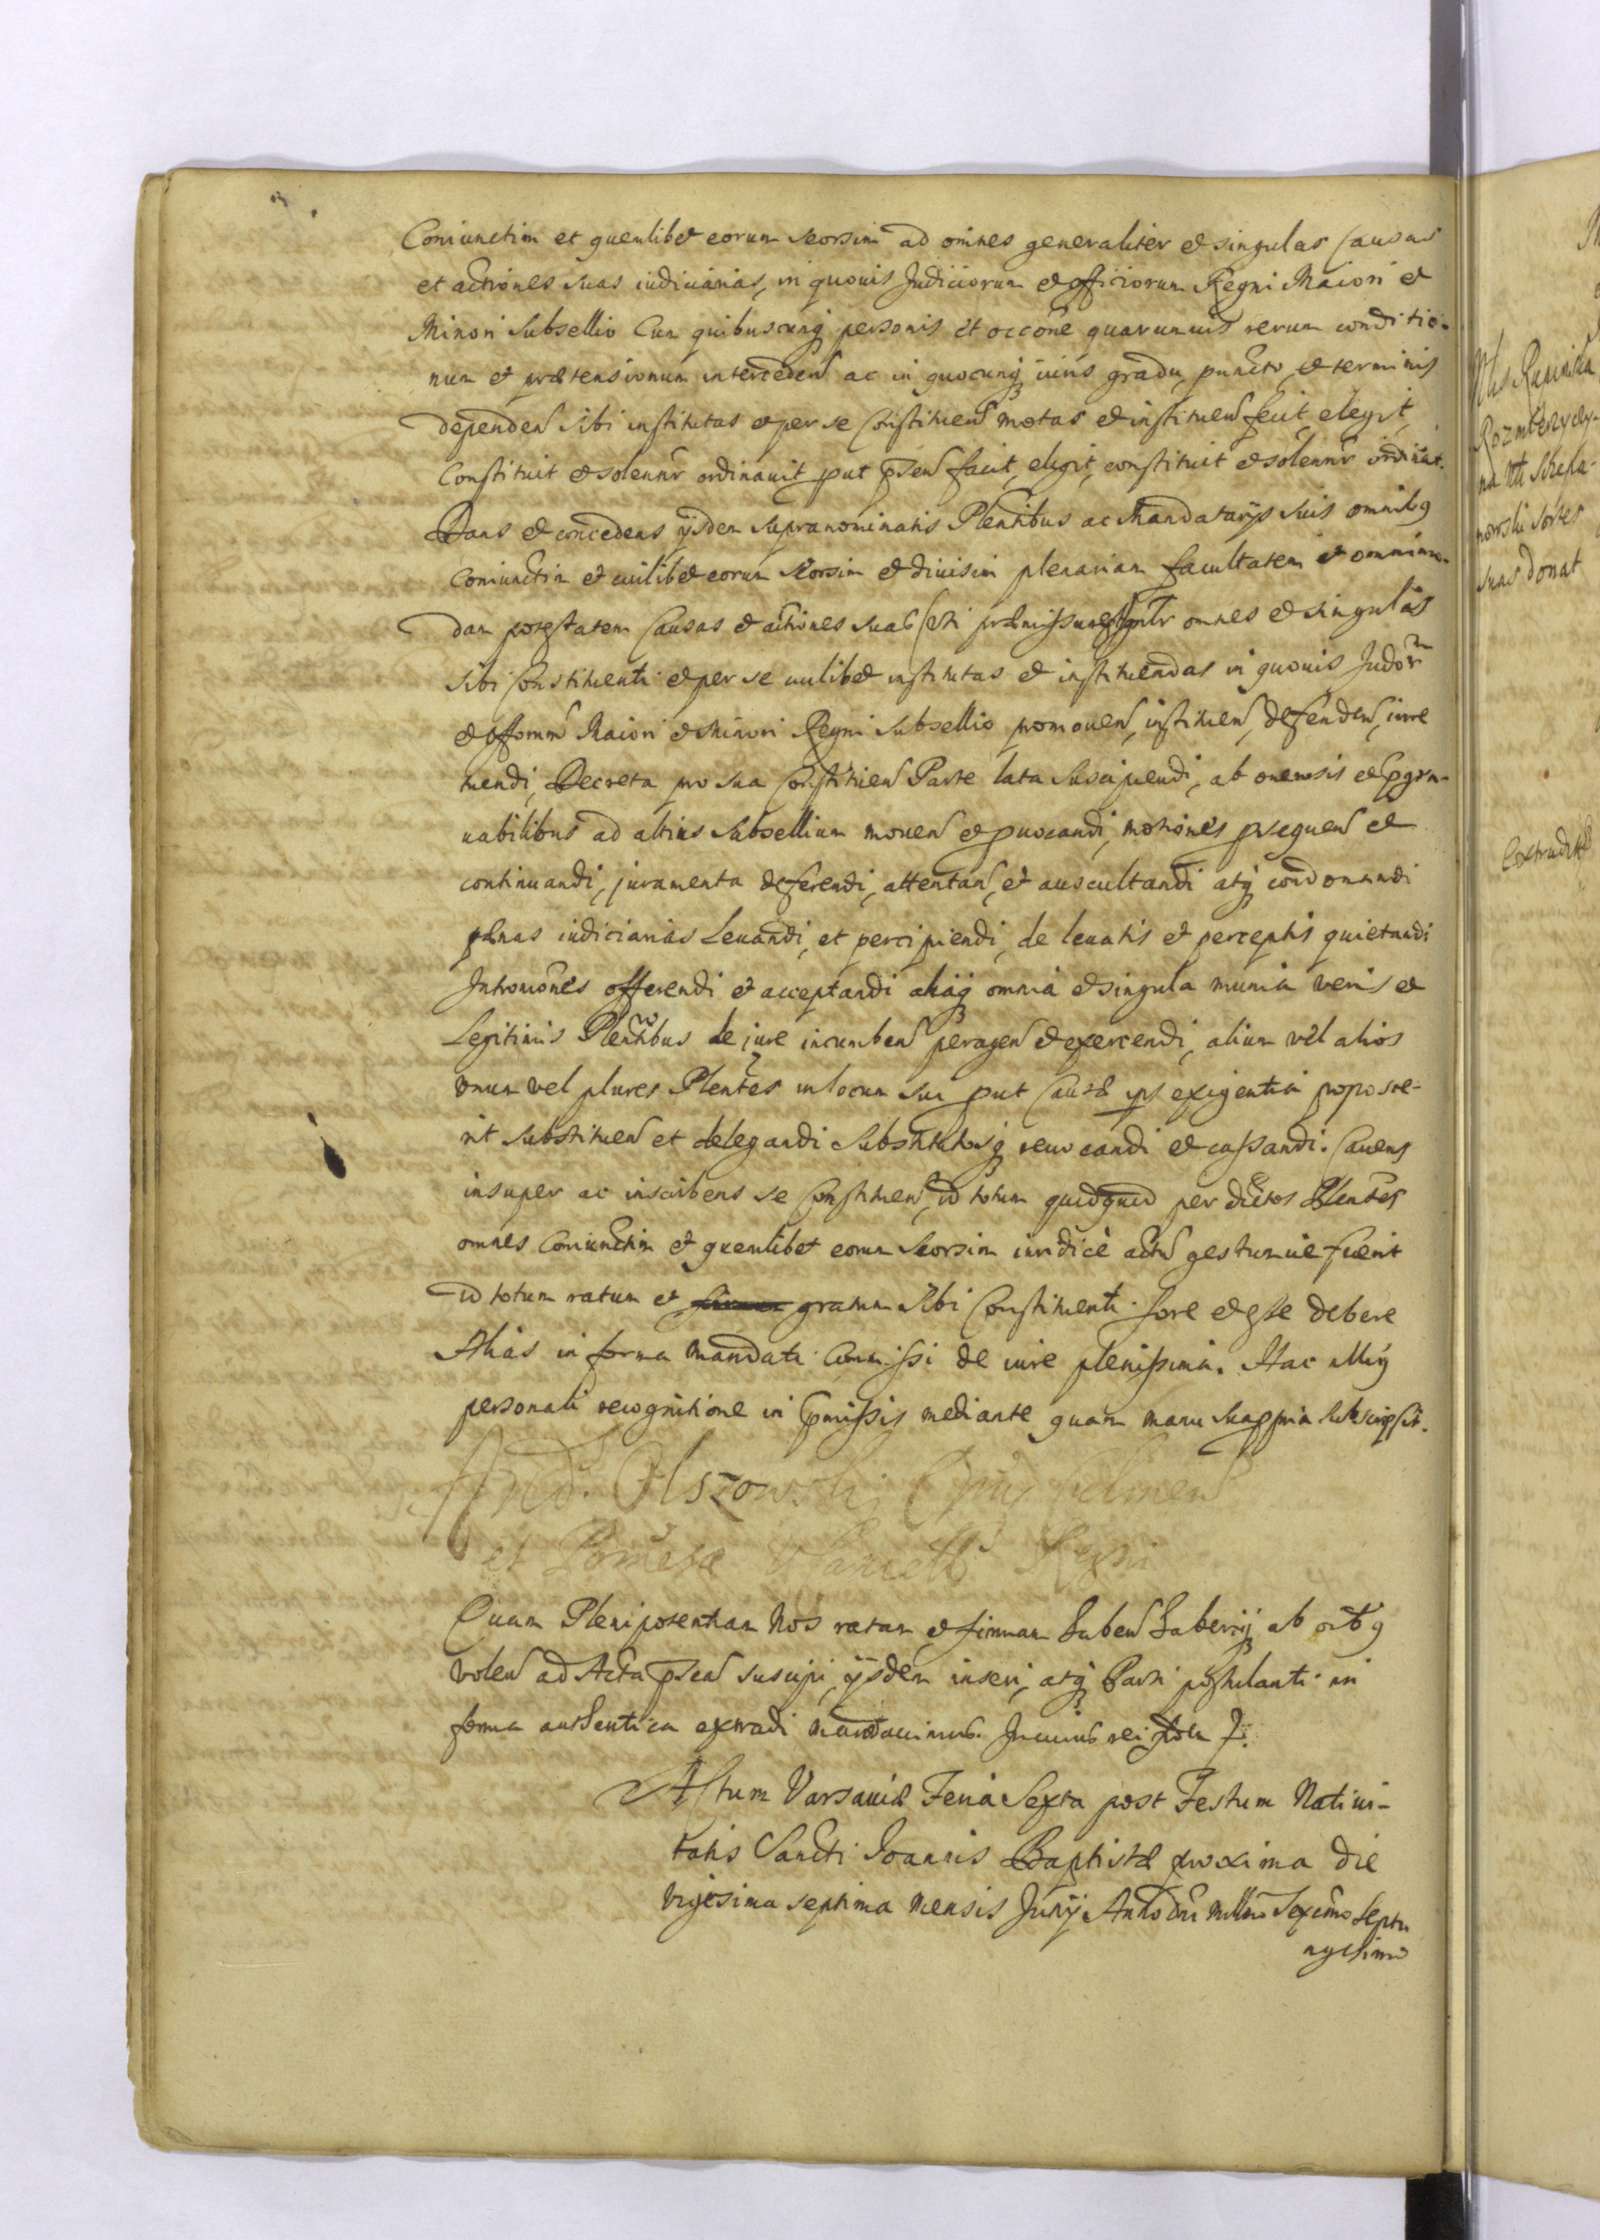 Coniunctim et quemlibet eorum seorsim ad omnes generaliter et singulas Causas
et actiones suas iudiciarias, in quouis Judiciorum et officiorum Regni Maiori et
Minori Subsellio Cum quibuscunq personis et occone quarumuis rerum conditio-
num et prætensionum interceden ac in quocunq iuris gradu, puncto, et terminis
dependen sibi institutas et per se Constituen motas et instituen fecit, elegit,
Constituit et solennr ordinauit put psen facit, eligit, constituit et solennr ordinat.
Dans et concedens ijsdem supranominatis Plentibus ac Mandatarijs suis omnibq
coniunctim et cuilibet eorum seorsim et diuisim plenariam facultatem et omnimo-
dam potestatem Causas et actiones suas omnes et singulas
sibi Constituenti et per se cuilibet institutas et instituendas in quouis Judor
et offorum Maiori et Minori Regni Subsellio promouen, instituen, defenden, iure
tuendi, Decreta pro sua Constituen Parte lata suscipiendi, ab onerosis et pgra-
uabilibus ad altius Subsellium mouen et puocandi, motiones psequen et
continuandi, juramenta deferendi, attentan, et auscultandi atq condonandi
pœnas iudiciarias Leuandi, et percipiendi, de leuatis et perceptis quietandi
Intromones offerendi et acceptandi aliaq omnia et singula munia veris et
Legitimis Plentibus de jure incumben peragen et exercendi, alium vel alios
vnum vel plures Plentes in locum sui put Causæ ips exigentia propose-
rit substituen et delegandi substitutosq reuocandi et cassandi. Cauens
insuper ac inscribens se Constituen, id totum quidquid per dictos Plentes
omnes coniunctim et quemlibet eorum seorsim iuridicè actu gestumue fuerit
id totum ratum et gratum sibi Constituenti fore et esse debere
Alias in forma mandati Commissi de iure plenissima. Hac
personali recognitione in pmissis mediante quam manu sua ppria subscripsit.
And. Olszowski Epus Culmen
et Pomesa Vancell Regni
Quam Plenipotentiam Nos ratam et firmam haben haberiq ab oibq
volen ad Acta psen suscipi, ijsdem inseri, atq Parti postulanti in
forma authentica extradi mandauimus. In cuius rei fidem
Actum Varsauiæ Feria Sexta post Festum Natiui-
tatis Sancti Joannis Baptistæ proxima die
vigesima septima mensis Junij Anno Dni Millmo Sexcmo Septu
agesimo
Rozmberzycky-
nowski sortes
suas donat